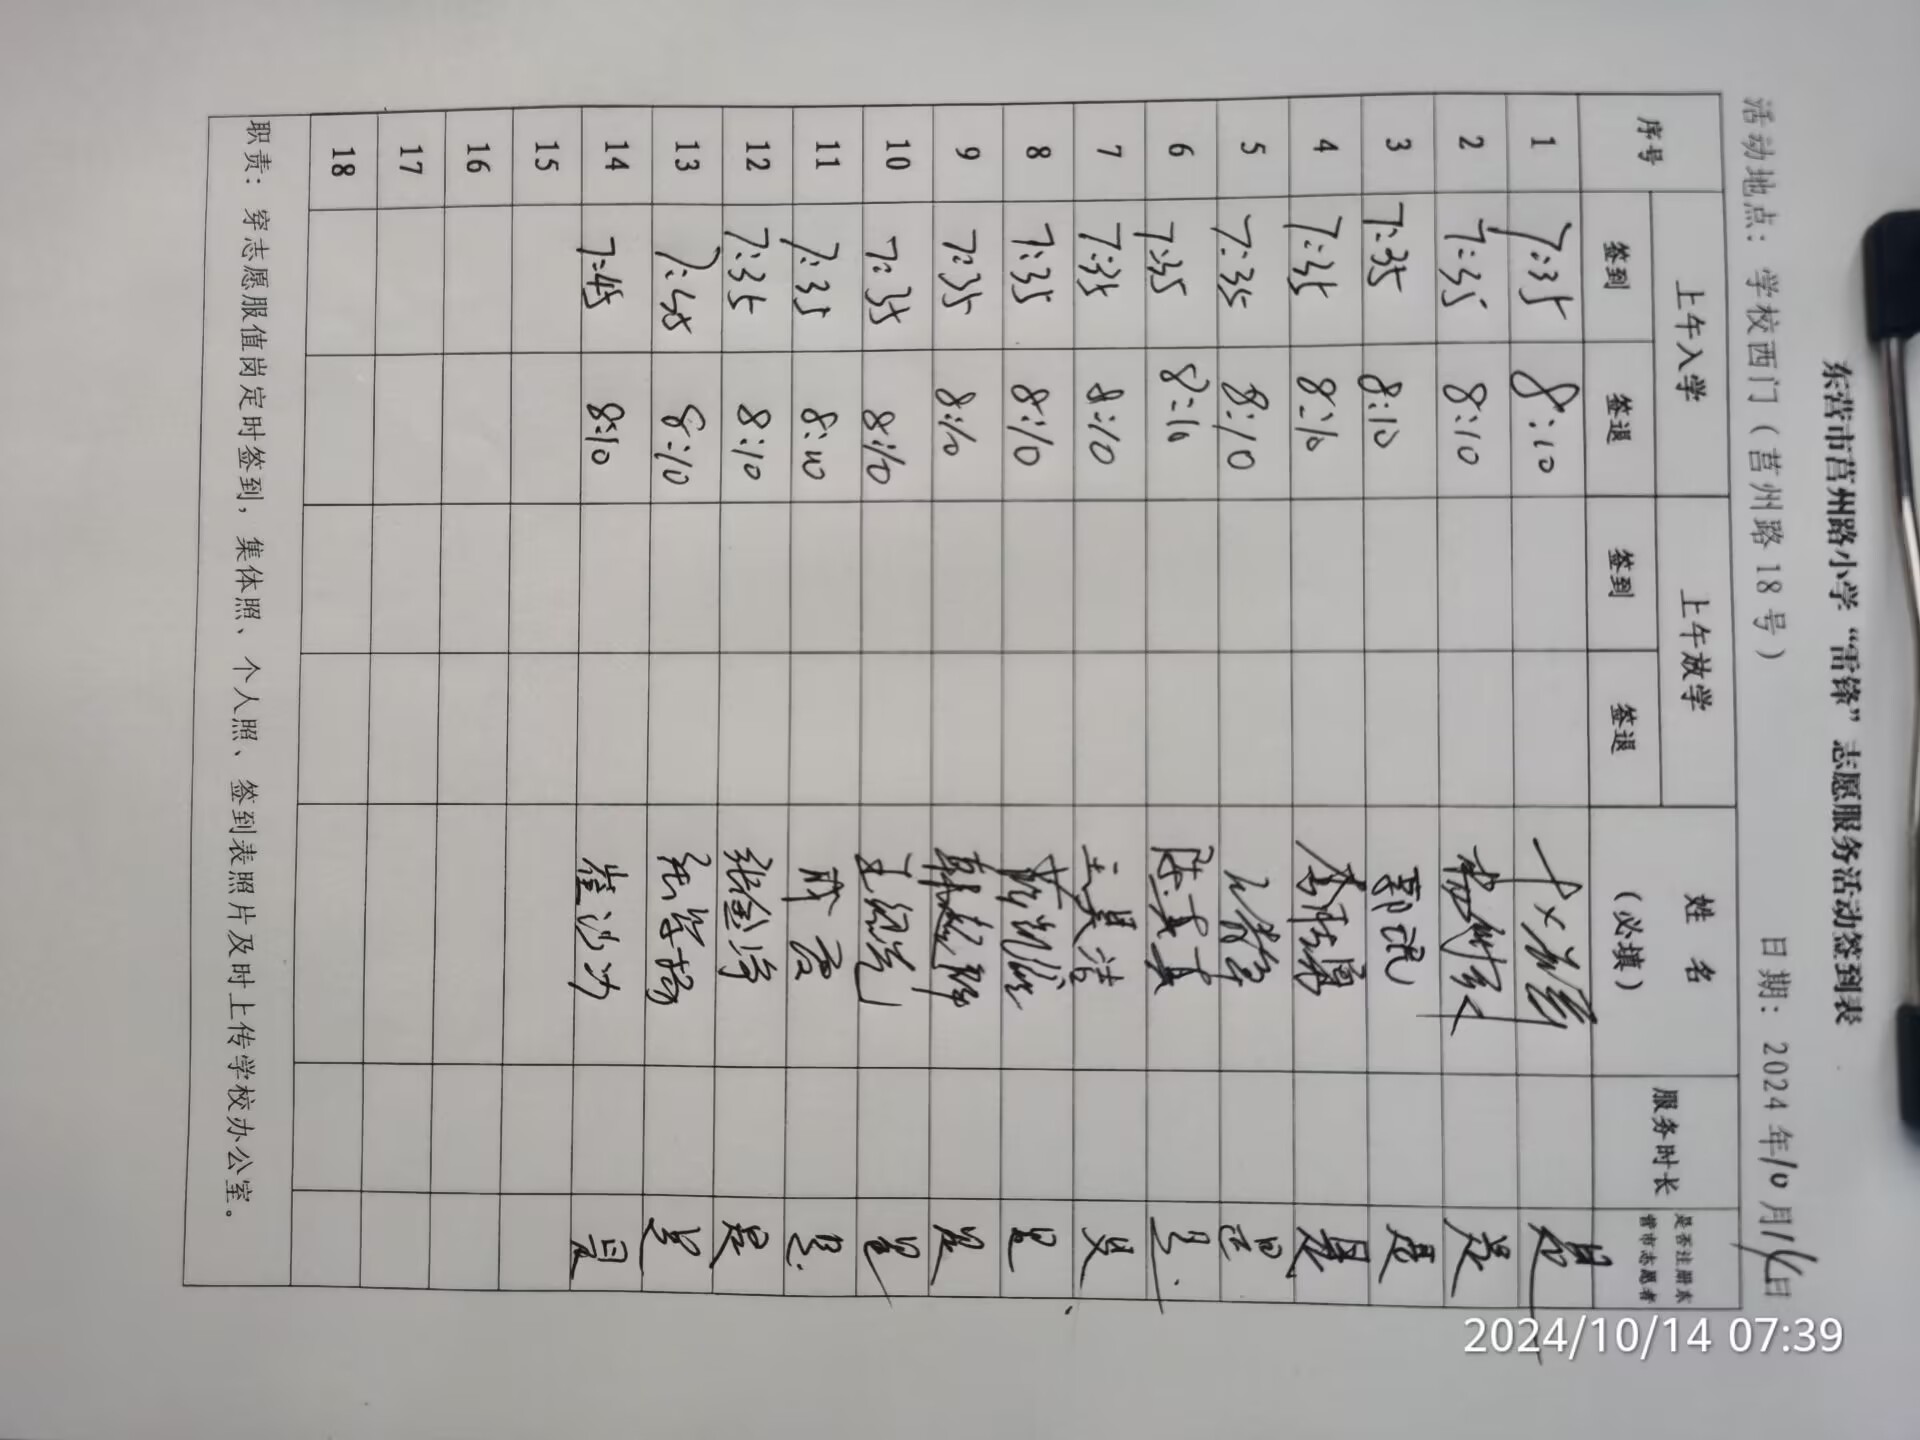 东营市莒州路小学“雷锋”志愿服务活动签到表
活动地点：学校西门（莒州路18号） 日期：2024年10月14日
序号 上午入学 上午放学 姓名（必填） 服务时长 是否注册东营市志愿者
签到 签退 签到 签退
1 7:35 8:10 是
2 7:35 8:10 是
3 7:35 8:10 郭 是
4 7:35 8:10 是
5 7:35 8:10 是
6 7:35 8:10 陈真真 是
7 7:35 8:10 王昊洁 是
8 7:35 8:10 是
9 7:35 8:10 是
10 7:35 8:10 是
11 7:35 8:10 是
12 7:35 8:10 张金 是
13 8:10 张学扬 是
14 7:45 8:10 崔沙沙 是
15
16
17
18
职责：穿志愿服值岗定时签到，集体照、个人照、签到表照片及时上传学校办公室。
2024/10/14 07:39